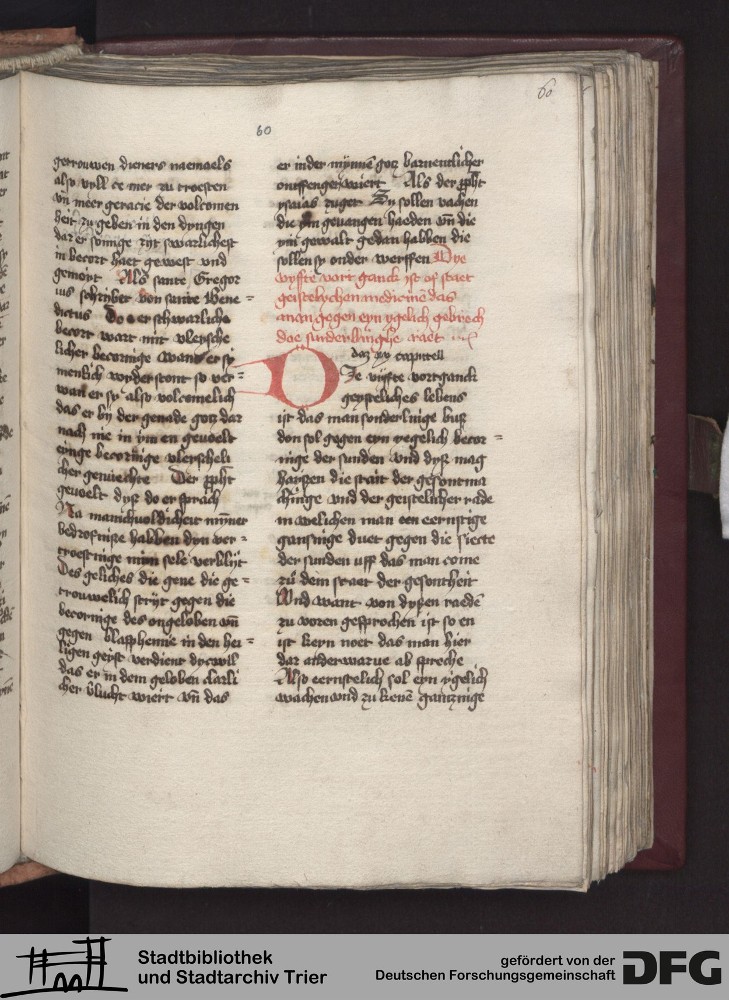 60
60
getrouwen dieners naemaels
also vyll ee mer zu troesten
vn̄ meer geracie der volcomen
heit zu geben in den dyngen
dar er somige zijt swarlichest
in becort haet gewest vnd
gemoyt Als sante Gregor
ius schriber von sante Bene=
dictus Do er schwarliche
becort wart mit vlersche
licher becornige wand er sy
menlich wyderstont so ver=
wan er sy also volcomelich
das er by der genade gotz dar
nach nie in ym en gevoelt
eynge becornige vlerscheli
cher geniechte Der ppht
gevoelt dyß do er sprach
Na manichuoldicheit mȳner
bedrofniße habben dyn ver=
troestnige mym sele verblijt
Des geliches die gene die ge=
trouwelich strijt gegen die
becornige des ongeloben vn̄
gegen blasphemie in den hei=
ligen geyst verdient dycwil
das er in dem geloben clarli
cher v̄lucht wiert vn̄ das
er in der mȳnnē gotz barnentlicher
ontffenget wiert Als der ppht
ysaias zuget Sy sollen vachen
die ym gevangen haeden vn̄ die
ym gewalt gedan habben die
sollen sy onder werffen Dye
vyffte vort ganck ist of staet
geistelychen medicinē das
man gegen eyn ygelich gebrech
doe sunderlinghe raet
daz xv capittell
DJe vijfte vortganck
geystliches lebens
ist das man sonderlnige buß
don sol gegen eyn yegelich becor=
nige der sunden vnd dyß mag
haißen die strait der gesontma
chnige vnd der geistelicher rade
in welichen man een eernstige
gansnige duet gegen die siecte
der sunden uff das man come
zu dem straet der gesontheit
Vnd want von dyßen raedē
zu voren gesprochen ist so en
ist keyn noet das man hier
dar anderwarue ab spreche
Also eernstelich sol eyn ygelich
wachen vnd zu kenē gantznige
Stadtbibliothek
und Stadtarchiv Trier
gefördert von der
Deutschen Forschungsgemeinschaft
DFG